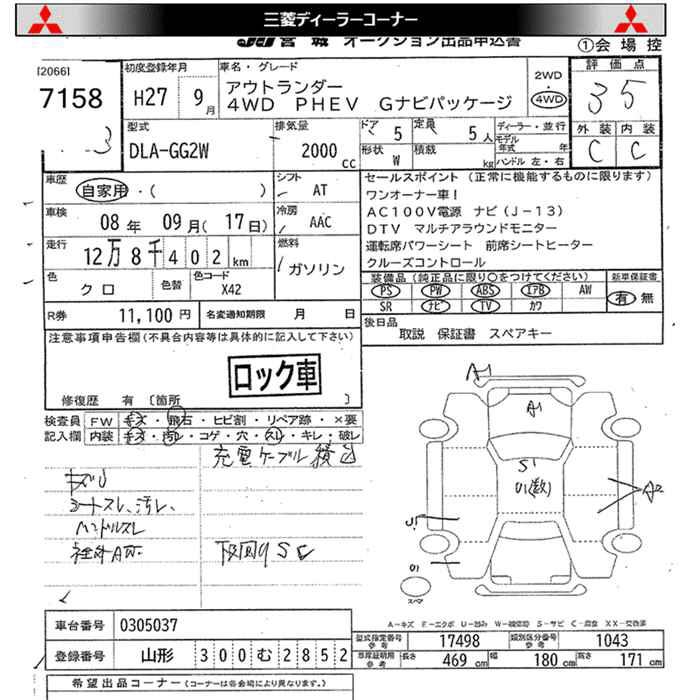 三菱ディーラーコーナー
JU 宮城 オークション出品申込書
①会場控
[2066]
7158
初度登録年月
H27 9月
車名・グレード
アウトランダー
4WD PHEV Gナビパッケージ
2WD
・
4WD
評価点
3 5
外装 内装
C C
3
型式
DLA-GG2W
排気量
2000 cc
ドア 5
定員 5人
形状 W
積載 kg
ディーラー・並行
モデル年式 年
ハンドル 左・右
車歴
自家用・( )
シフト
AT
車検
08年 09月(17日)
冷房
AAC
走行
12万8千402km
燃料
ガソリン
色
クロ
色替
色コード
X42
セールスポイント (正常に機能するものに限ります)
ワンオーナー車!
AC100V電源 ナビ(J-13)
DTV マルチアラウンドモニター
運転席パワーシート 前席シートヒーター
クルーズコントロール
装備品 (純正品に限り○をつけてください)
PS PW ABS エアB AW
SR ナビ TV カワ
新車保証書
有 無
R券 11,100円
名変通知期限 月 日
後日品
取説 保証書 スペアキー
注意事項申告欄(不具合内容等は具体的に記入して下さい)
ロック車
修復歴 有 〔箇所 〕
検査員記入欄
FW キズ・飛石・ヒビ割・リペア跡・×要
内装 キズ・汚レ・コゲ・穴・スレ・キレ・破レ
充電ケーブル積込
キズU
シートスレ、汚レ、
ハンドルスレ
下回りSC
A1
A1
S1
U1(数)
A2
U1
スペア
A-キズ E-エクボ U-凹み W-補修跡 S-サビ C-腐食 XX-交換済
車台番号 0305037
登録番号 山形 300む2852
型式指定番号 参考 17498
類別区分番号 参考 1043
車庫証明用 参考 長さ 469cm 幅 180cm 高さ 171cm
希望出品コーナー (コーナーは各会場により異なります。)